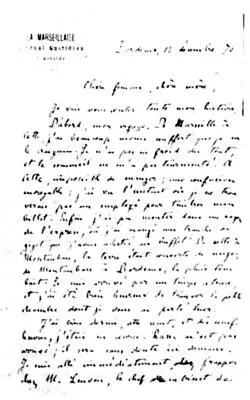 LA MARSEILLAISE
Journal Quotidien
Bordeaux, 12 décembre 70
Chère femme, chère mère,
Je vais vous conter toute mon histoire.
D'abord, mon voyage. De Marseille à
Cette j'ai beaucoup moins souffert que je ne
le craignais. Je n'ai pas eu froid du tout,
et le sommeil ne m'a pas tourmenté. A
Cette, impossible de manger; une confusion
incroyable; j'ai vu l'instant où je ne
pas un employé pour timbrer mon
billet. Enfin j'ai pu monter dans un wagon
de l'express, où j'ai mangé une tranche de
gigot que j'avais achetée au buffet. De Cette à
Montauban, la terre était couverte de neige;
de Montauban à Bordeaux, la pluie
Je suis arrivé par un temps atroce,
et j'ai été bien heureux de trouver la petite
chambre dont je dois
J'ai bien dormi, et neuf
heures, j'étais n'est pas
il sera sans doute ici demain.
Je suis allé immédiatement
chez M. le chef de cabinet de